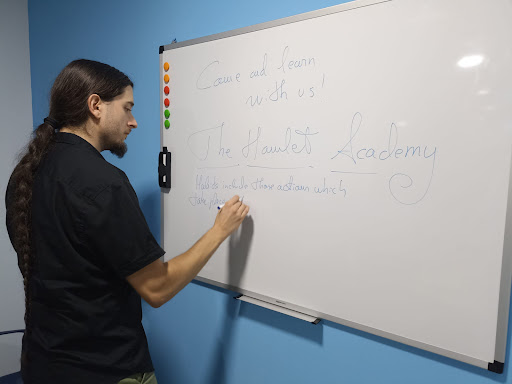 Come and learn
with us!
The Hamlet Academy
Habits include those actions which
take place